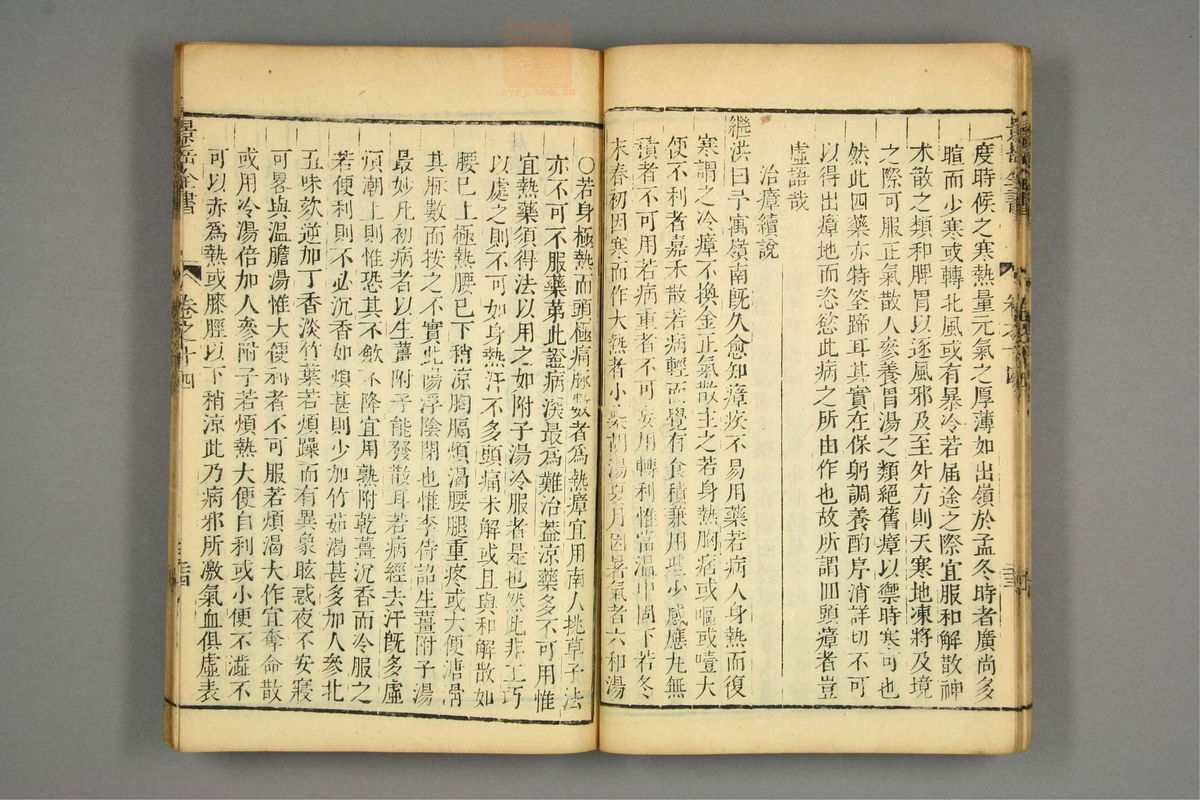 度時候之寒熱量元氣之厚薄如出嶺於孟冬時者廣尚多
暄而少寒或轉北風或有暴冷若届途之際宜服和解散神
术散之類和脾胃以逐風邪及至外方則天寒地凍將及境
之際可服正氣散人參養胃湯之類絕舊瘴以禦時寒可也
然此四藥亦特筌蹄耳其實在保躬調養酌序消詳切不可
以得出瘴地而恣慾此病之所由作也故所謂回頭瘴者豈
虛語哉
治瘴續說
繼洪曰予寓嶺南既久愈知瘴疾不易用藥若病人身熱而復
寒謂之冷瘴不換金正氣散主之若身熱胸痞或嘔或噎大
便不利者嘉禾散若病輕而覺有食積兼用些少感應尤無
積者不可用若病重者不可妄用轉利惟當温中固下若冬
末春初因寒而作大熱者小柴胡湯夏月因暑氣者六和湯
景岳全書
卷之十四
○若身極熱而頭極痛脉數者為熱瘴宜用南人挑草子法
亦不可不服藥第此證病深最為難治蓋凉藥多不可用惟
宜熱藥須得法以用之如附子湯冷服者是也然此非工巧
以處之則不可如身熱汗不多頭痛未解或且與和解散如
腰已上極熱腰已下稍凉胸膈煩渴腰腿重疼或大便溏滑
其脉數而按之不實此陽浮陰閉也惟李待詔生薑附子湯
最妙凡初病者以生薑附子能發散耳若病經去汗既多虛
煩潮上則惟恐其不歛不降宜用熟附乾薑沉香而冷服之
若便利則不必沉香如煩甚則少加竹茹渴甚多加人參北
五味欬逆加丁香淡竹葉若煩躁而有異象眩惑夜不安寢
可畧與温膽湯惟大便利者不可服若煩渴大作宜奪命散
或用冷湯倍加人參附子若煩熱大便自利或小便不澁不
可以赤為熱或膝脛以下稍凉此乃病邪所激氣血俱虛表
景岳全書
卷之十四